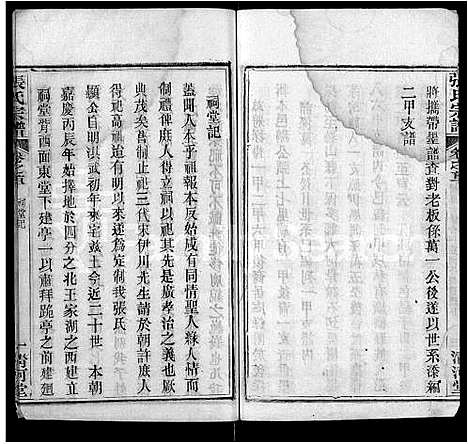 張氏宗譜
卷之五
清河堂
將攜帶墨譜查對老板係萬一公後遂以世系添編
二甲支譜
祠堂記
蓋聞人本乎祖報本反始咸有同情聖人緣情
制禮俾庶人得立祠以祀其先是廣孝治之義也厥
典茂矣古制止祀三代宋伊川先生請於朝許庶人
祀高祖追有明以來遂爲定制我張氏
顯公自明洪武初來宅茲土今近二十世 本朝
嘉慶丙辰年始擇地於四分之北王家湖之西建
祠堂背西面東堂下建亭一以肅拜跪亭之前建廻
張氏宗譜
卷之五
祠堂記
一
清河堂